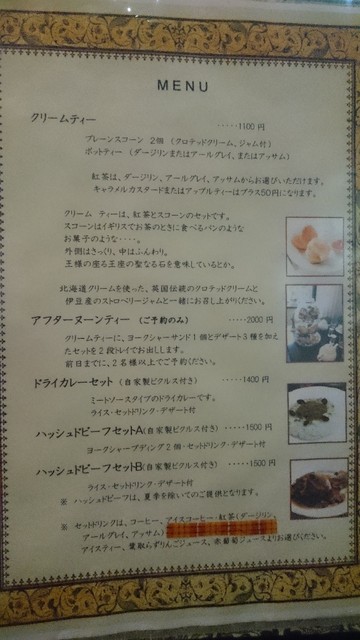 MENU
クリームティー ‥‥‥1100 円
プレーンスコーン 2個 (クロテッドクリーム、ジャム付)
ポットティー (ダージリンまたはアールグレイ、またはアッサム)
紅茶は、ダージリン、アールグレイ、アッサムからお選びいただけます。
キャラメルカスタードまたはアップルティーはプラス50円になります。
クリーム ティーは、紅茶とスコーンのセットです。
スコーンはイギリスでお茶のときに食べるパンのような
お菓子のような‥‥。
外側はさっくり、中はふんわり。
王様の座る王座の聖なる石を意味しているとか。
北海道クリームを使った、英国伝統のクロテッドクリームと
伊豆産のストロベリージャムと一緒にお召し上がりください。
アフターヌーンティー (ご予約のみ) ‥‥‥2000 円
クリームティーに、ヨークシャーサンド1個とデザート3種を加え
たセットを2段トレイでお出しします。
前日までに、2名様以上でご予約ください。
ドライカレーセット (自家製ピクルス付き) ‥‥‥1400 円
ミートソースタイプのドライカレーです。
ライス・セットドリンク・デザート付
ハッシュドビーフセットA(自家製ピクルス付き) ‥‥‥1500 円
ヨークシャープディング2個・セットドリンク・デザート付
ハッシュドビーフセットB(自家製ピクルス付き) ‥‥‥1500 円
ライス・セットドリンク・デザート付
※ ハッシュドビーフは、夏季を除いてのご提供となります。
※ セットドリンクは、コーヒー、アイスコーヒー・紅茶(ダージリン、
アールグレイ、アッサム)
アイスティー、葉取らずりんごジュース、赤葡萄ジュースよりお選びください。